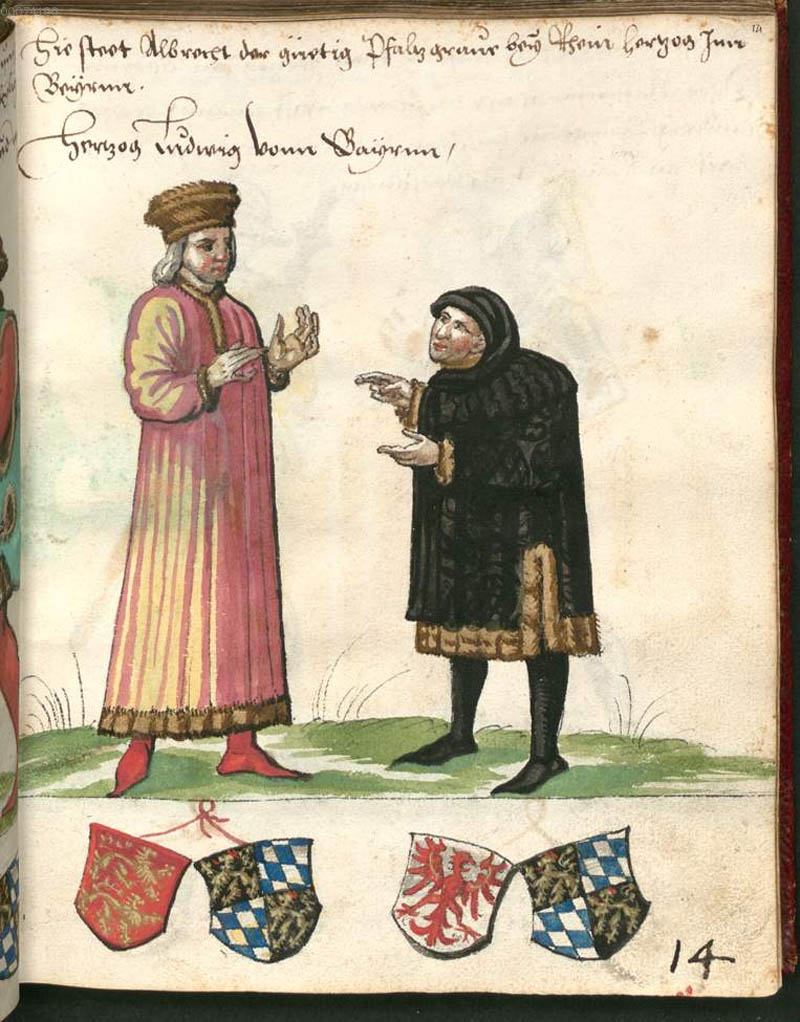 00074198
14
Hie steet Albrecht der güetig Pfaltzgraue bey Rhein Hertzog Inn
Beyrnn.
Hertzog Ludwig vonn Bayrnn /
14